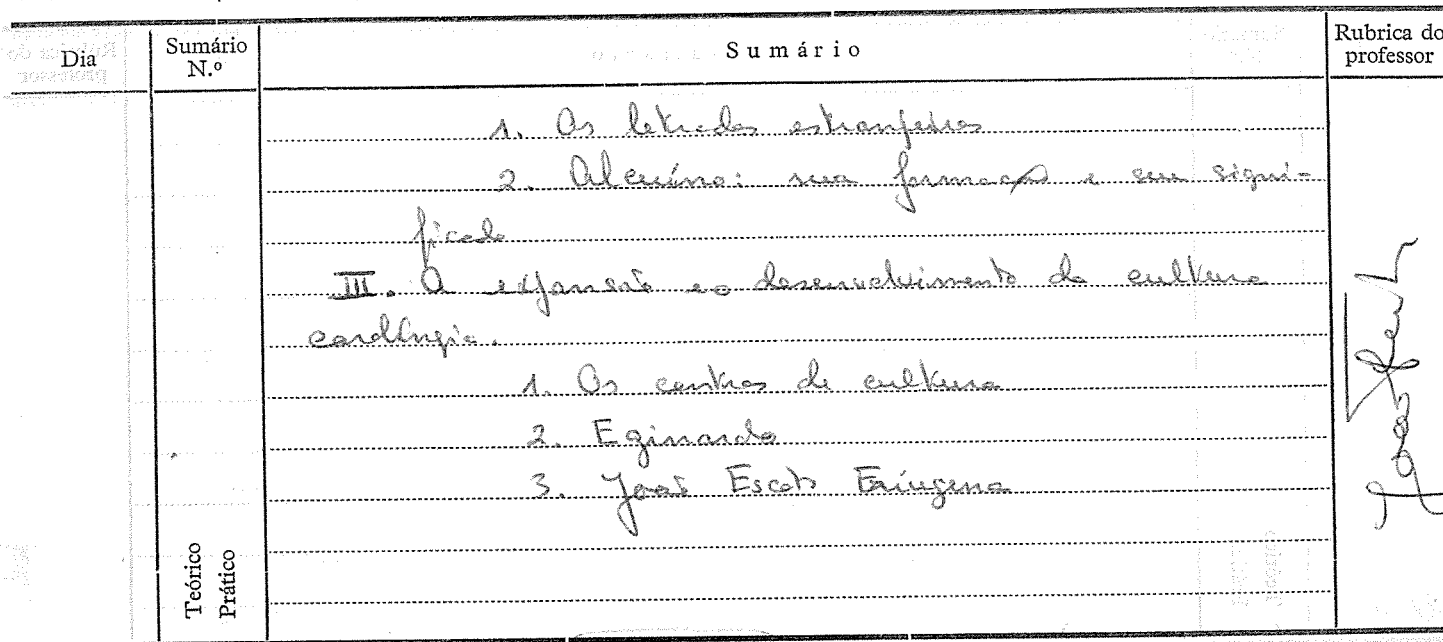 Dia
Sumário N.º
Sumário
Rubrica do professor
1. Os letrados estrangeiros
2. Alcuíno: sua formação e seu signi-
ficado
III. A expansão e o desenvolvimento da cultura
carolíngia.
1. Os centros de cultura
2. Eginardo
3. João Escoto Eriúgena
Teórico
Prático